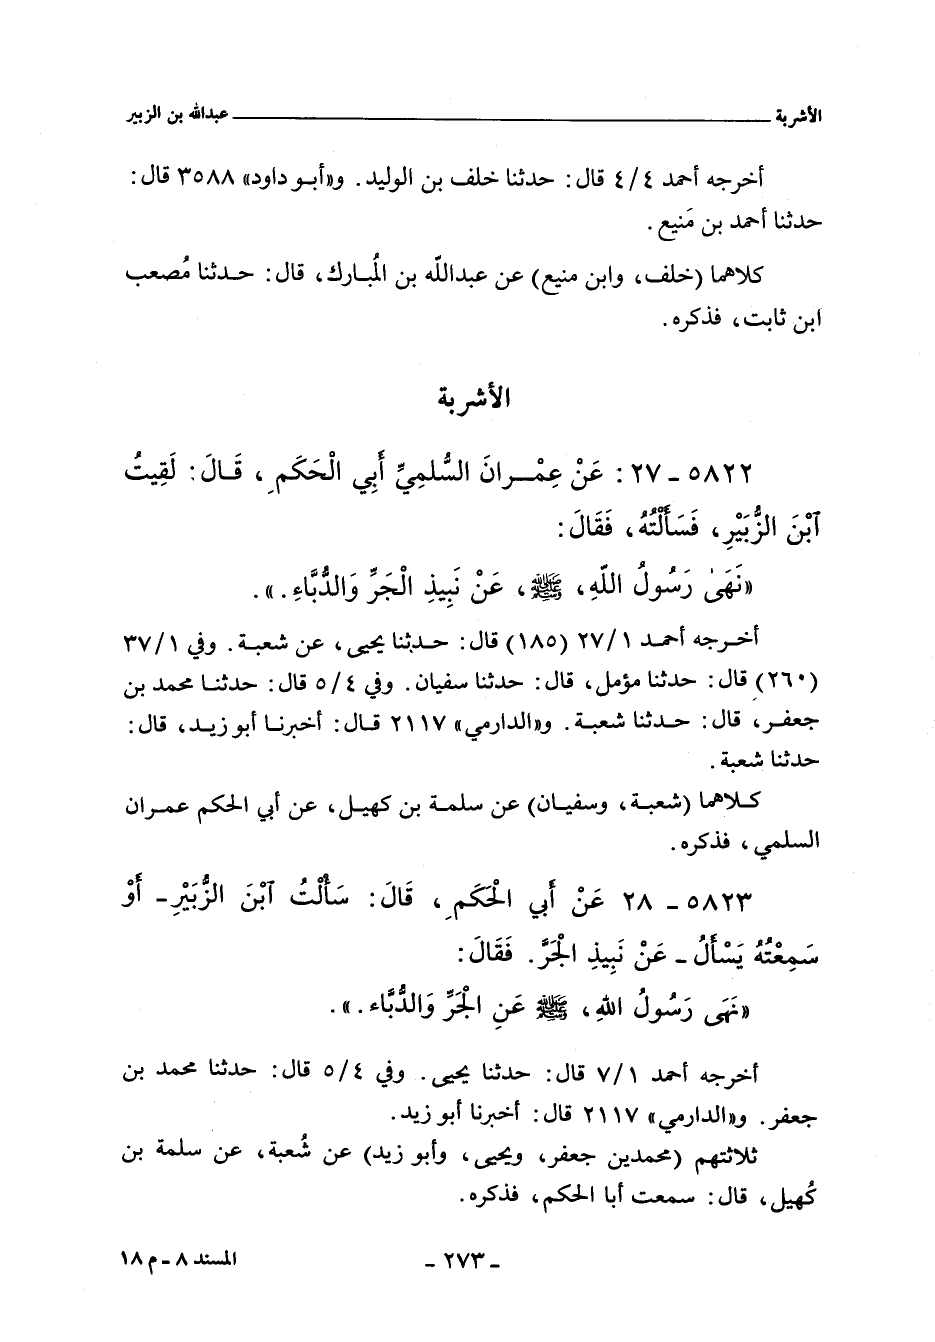 الأشربة ــــــــــ عبدالله بن الزبير
أخرجه أحمد ٤/٤ قال: حدثنا خلف بن الوليد. و«أبو داود» ٣٥٨٨ قال:
حدثنا أحمد بن مَنيع.
كلاهما (خلف، وابن منيع) عن عبداللّه بن المُبارك، قال: حدثنا مُصعب
ابن ثابت، فذكره.
الأشربة
٥٨٢٢ - ٢٧: عَنْ عِمْرانَ السُّلميِّ أَبِي الْحَكَمِ، قَالَ: لَقِيتُ
آبْنَ الزُّبَيْرِ، فَسَأَلْتُهُ، فَقَالَ:
«نَهَىٰ رَسُولُ اللّهِ، ﷺ، عَنْ نَبِيذِ الْجَرِّ وَالدُّبَّاءِ.».
أخرجه أحمد ٢٧/١ (١٨٥) قال: حدثنا يحيى، عن شعبة. وفي ٣٧/١
(٢٦٠) قال: حدثنا مؤمل، قال: حدثنا سفيان. وفي ٥/٤ قال: حدثنا محمد بن
جعفر، قال: حدثنا شعبة. و«الدارمي» ٢١١٧ قال: أخبرنا أبو زيد، قال:
حدثنا شعبة.
كلاهما (شعبة، وسفيان) عن سلمة بن كهيل، عن أبي الحكم عمران
السلمي، فذكره.
٥٨٢٣ - ٢٨ عَنْ أَبي الْحَكَمِ، قَالَ: سَأَلْتُ آبْنَ الزُّبَيْرِ - أَوْ
سَمِعْتُهُ يَسْأَلُ - عَنْ نَبِيذِ الْجَرَّ. فَقَالَ:
«نَهَى رَسُولُ اللهِ، ﷺ عَنِ الْجَرِّ وَالدُّبَّاء.».
أخرجه أحمد ٧/١ قال: حدثنا يحيى. وفي ٥/٤ قال: حدثنا محمد بن
جعفر. و«الدارمي» ٢١١٧ قال: أخبرنا أبو زيد.
ثلاثتهم (محمدين جعفر، ويحيى، وأبو زيد) عن شُعبة، عن سلمة بن
كُهيل، قال: سمعت أبا الحكم، فذكره.
- ٢٧٣ - المسند ٨ - م ١٨